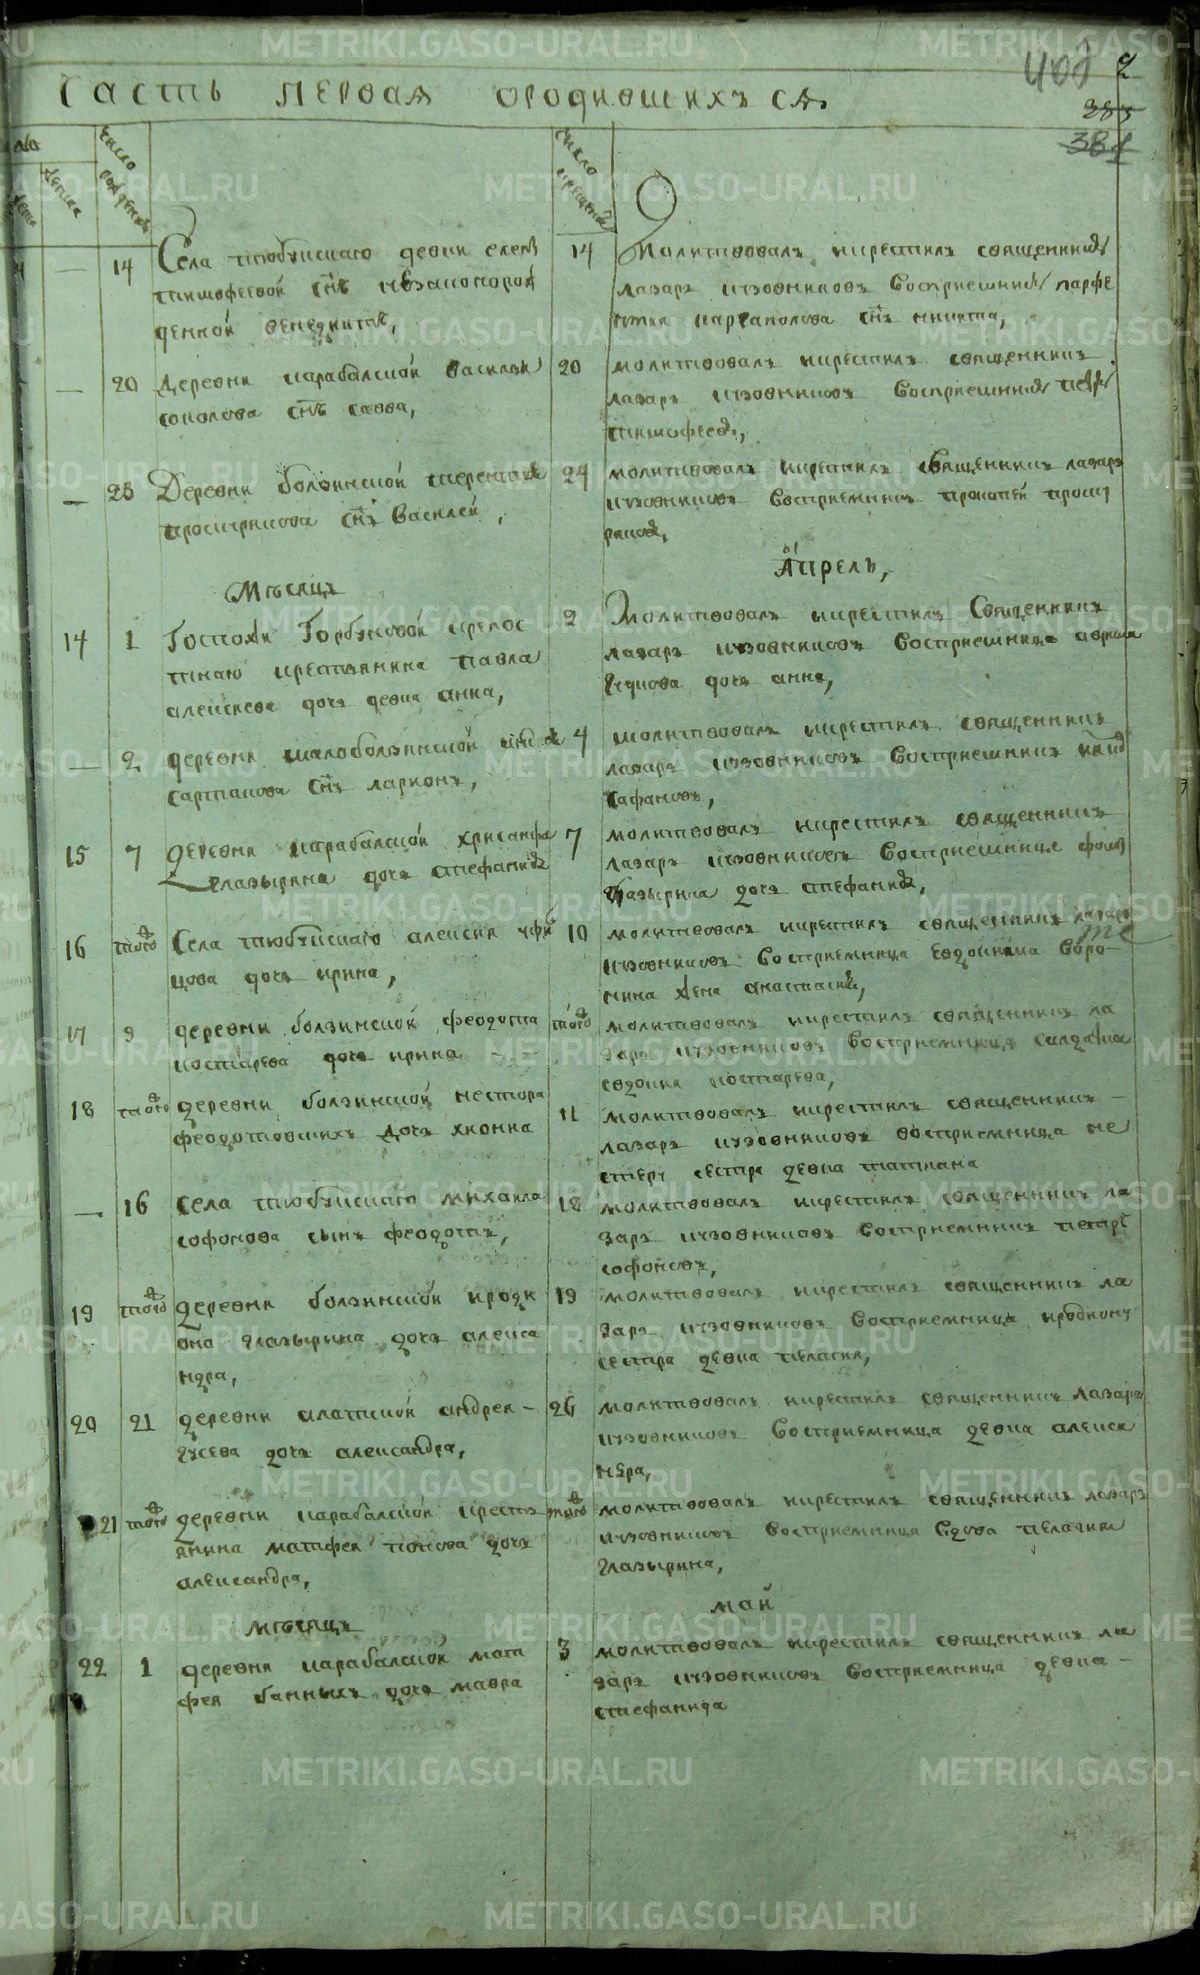 Часть первая ородившихъ ся.
2
383
384
число рожденія
число крещенія
детска
14
Села тюбукскаго девки елены
тимофеевой снъ незаконорож
денной венедиктъ,
14
Молитвовалъ икрестилъ священникъ
лазарь восприемникъ парфе
нтия карѳаполова снъ никита,
20
Деревни карабалской василья
соколова снъ савва,
20
молитвовалъ икрестилъ священникъ
лазарь восприемникъ петръ
тимофеевъ,
23
Деревни болзинской терентья
проскурякова снъ василей,
24
молитвовалъ икрестилъ священникъ лазарь
восприемникъ прокопей проску
ряковъ,
Мѣсяцъ
Апрель,
14
1
Госпожи Горбуновой крепос
тнаго крестьянина павла
алексеева дочь девка анна,
2
Молитвовалъ икрестилъ Священникъ
лазарь восприемница
дочь анна,
2
деревни малоболзинской
сартакова снъ ларионъ,
4
молитвовалъ икрестилъ священникъ
лазарь восприемникъ
сафановъ,
15
7
деревни карабалской хрисанфа
глазырина дочь стефанида
7
молитвовалъ икрестилъ священникъ
лазарь восприемница фомы
глазырина дочь стефанида,
16
того
Села тюбукскаго алексея уфи
цова дочь ирина,
10
молитвовалъ икрестилъ священникъ лазарь
восприемница евдокима воро-
нина жена анастасия,
17
9
деревни болзинской феодота
костарева дочь ирина
того
молитвовалъ икрестилъ священникъ ла
зарь восприемница салдатка
евдокия костарева,
18
того
деревни болзинской нестора
феодотовскихъ дочь хиония
11
молитвовалъ икрестилъ священникъ
лазарь восприемница не
стеру сестра девка татиана
16
села тюбукскаго михаила
софонова сынъ феодотъ,
18
молитвовалъ икрестилъ священникъ ла
зарь восприемникъ петръ
софоновъ,
19
того
деревни болзинской ироди
она глазырина дочь алекса
ндра,
19
молитвовалъ икрестилъ священникъ ла
зарь восприемница иродиону
сестра девка пелагия,
20
21
деревни алатской андрея
гусева дочь александра,
26
молитвовалъ икрестилъ священникъ лазарь
восприемница девка алекса
ндра,
21
того
деревни карабалской кресть
янина матфея попова дочь
александра,
того
молитвовалъ икрестилъ священникъ лазарь
восприемница вдова пелагия
глазырина,
мѣсяцъ
май
22
1
деревни карабалской мат
фея банныхъ дочь мавра
3
молитвовалъ икрестилъ священникъ ла
зарь восприемница девка
стефанида
METRIKI.GASO-URAL.RU